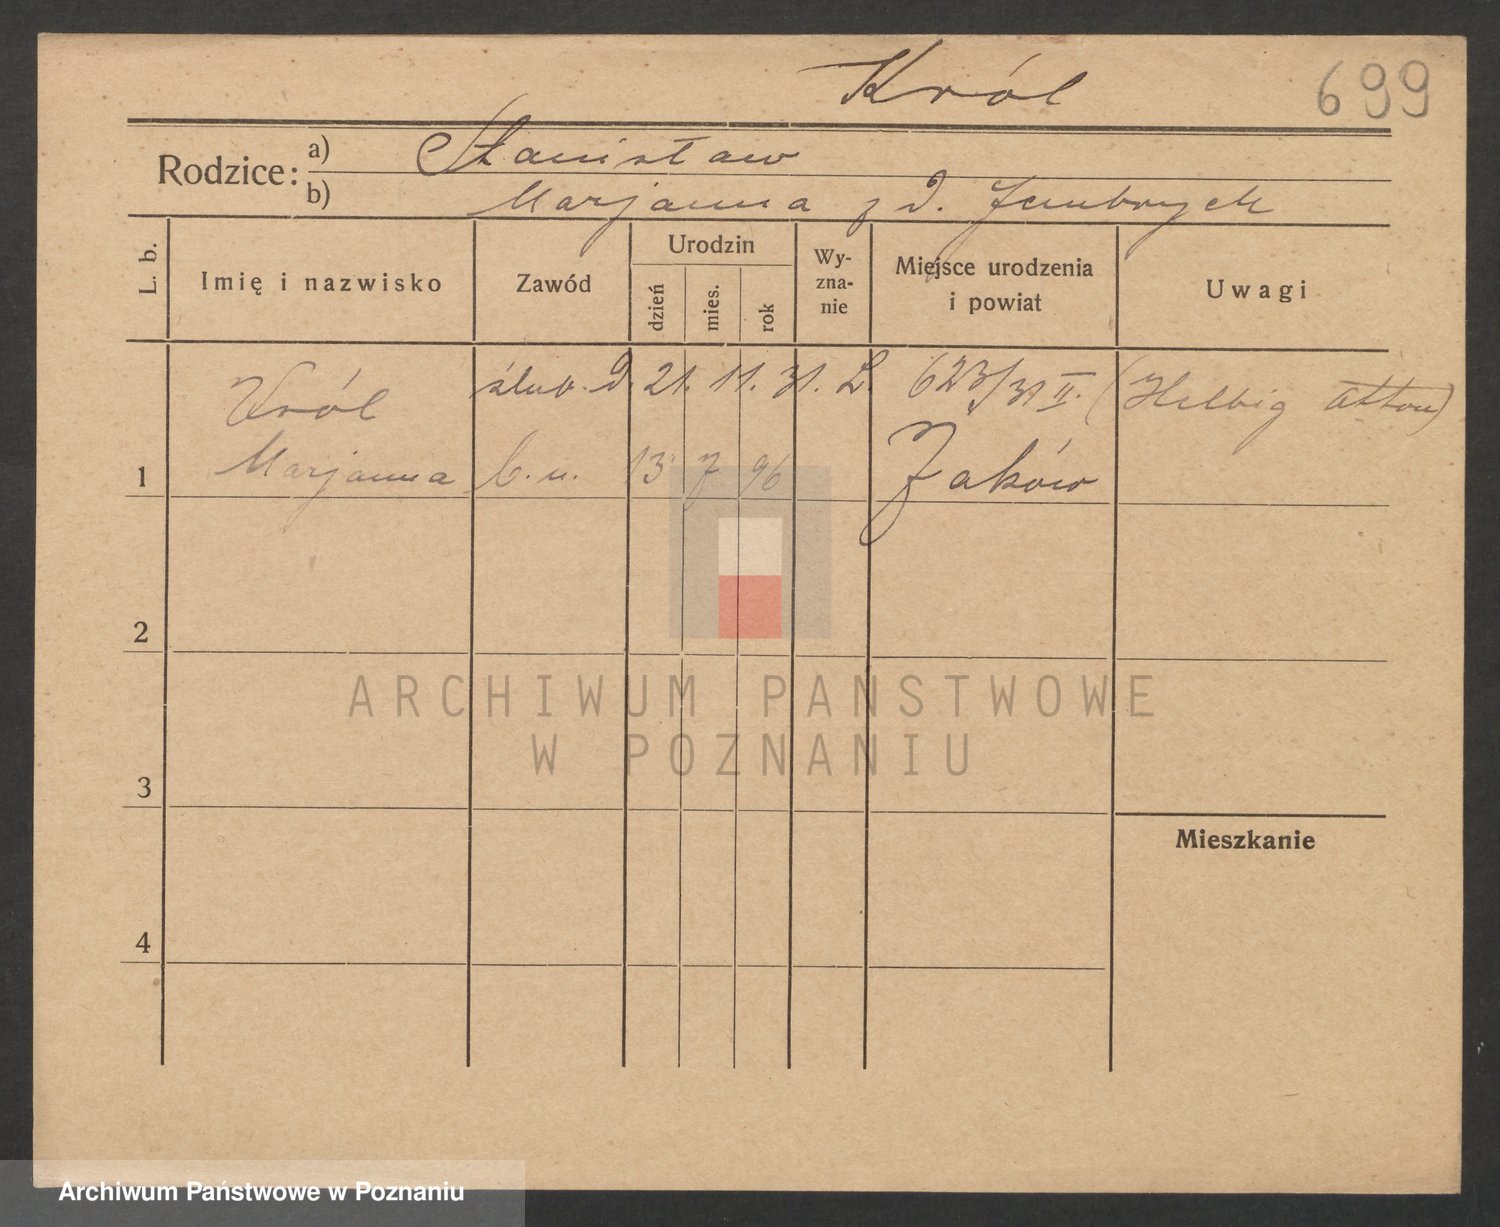 Król
699
Rodzice: a) Stanisław
b) Marjanna z d.
L. b.
Imię i nazwisko
Zawód
Urodzin
dzień
mies.
rok
Wy-
zna-
nie
Miejsce urodzenia
i powiat
Uwagi
ślub. d. 21. 11. 31. L. 623/31 II. (Helbig Otton)
Król
1 Marjanna b.u. 13 7 96 Żaków
2
ARCHIWUM PAŃSTWOWE
W POZNANIU
3
Mieszkanie
4
Archiwum Państwowe w Poznaniu